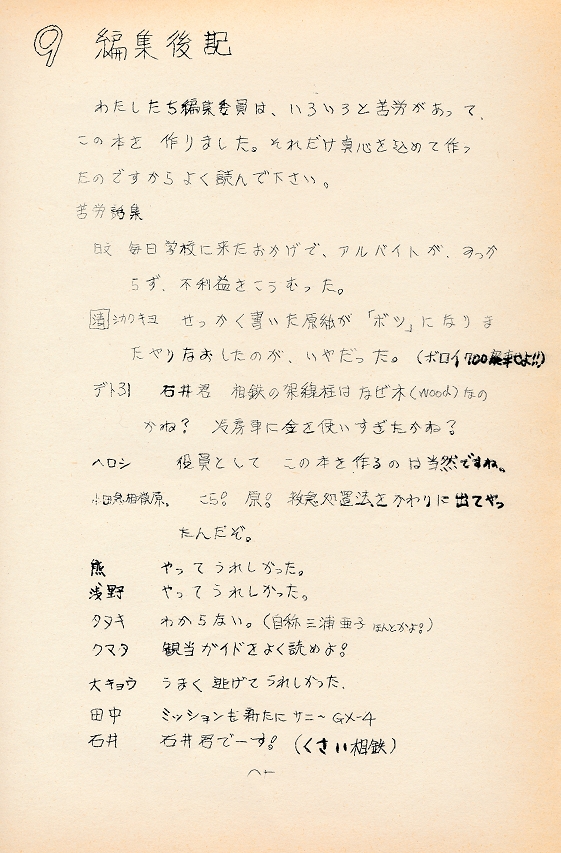 9 編集後記
わたしたち編集委員は、いろいろと苦労があって、
この本を 作りました。それだけ真心を込めて作っ
たのですからよく読んで下さい。
苦労話集
毎日学校に来たおかげで、アルバイトが、みつか
らず、不利益をこうむった。
清 シカクキヨ せっかく書いた原紙が「ボツ」になりま
たやりなおしたのが、いやだった。(ボロイ700
デト31 石井君 相鉄の架線柱はなぜ木(wood)なの
かね? 冷房車に金を使いすぎたかね?
ヘロシ 役員として この本を作るのは当然ですね。
小田急相模原。 こら! 原! 救急処置法をかわりに出てやっ
たんだぞ。
熊 やってうれしかった。
浅野 やってうれしかった。
タヌキ わからない。(自称三浦亜子 ほんとかよ!)
クマタ 観当ガイドをよく読めよ!
大キョウ うまく逃げてうれしかった.
田中 ミッションも新たにサニー GX-4
石井 石井君でーす! (くさい相鉄)